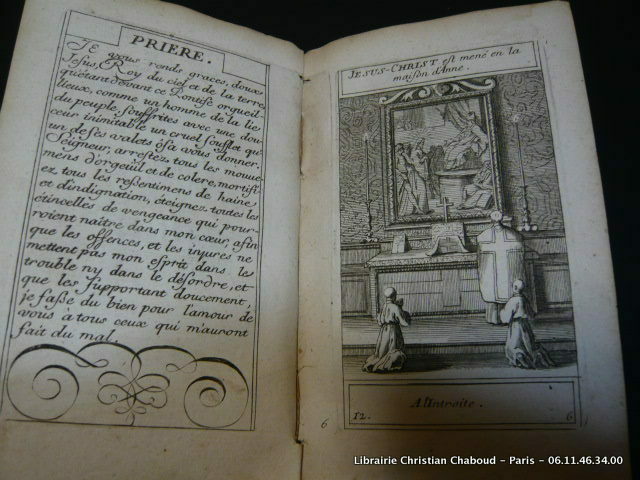 PRIERE.
JE vous rends graces, doux
Jesus, Roy du ciel et de la terre
qu'étant devant ce Pontife orgueil-
lieux, comme un homme de la lie
du peuple, souffrites avec une dou-
ceur inimitable un cruel soufflet qu'
un de ses valets osa vous donner.
Seigneur, arrestez tous les mouve-
mens d'orgeüil et de colere, mortifi-
ez tous les ressentimens de haine
et d'indignation, éteignez toutes les
étincelles de vengeance qui pour-
roient naître dans mon cœur, afin
que les offences, et les injures ne
mettent pas mon esprit dans le
trouble ny dans le désordre, et
que les supportant doucement,
je fasse du bien pour l'amour de
vous à tous ceux qui m'auront
fait du mal.
JESUS-CHRIST est mené en la
maison d'Anne.
A l'Introite.
12. 6
6
Librairie Christian Chaboud - Paris - 06.11.46.34.00